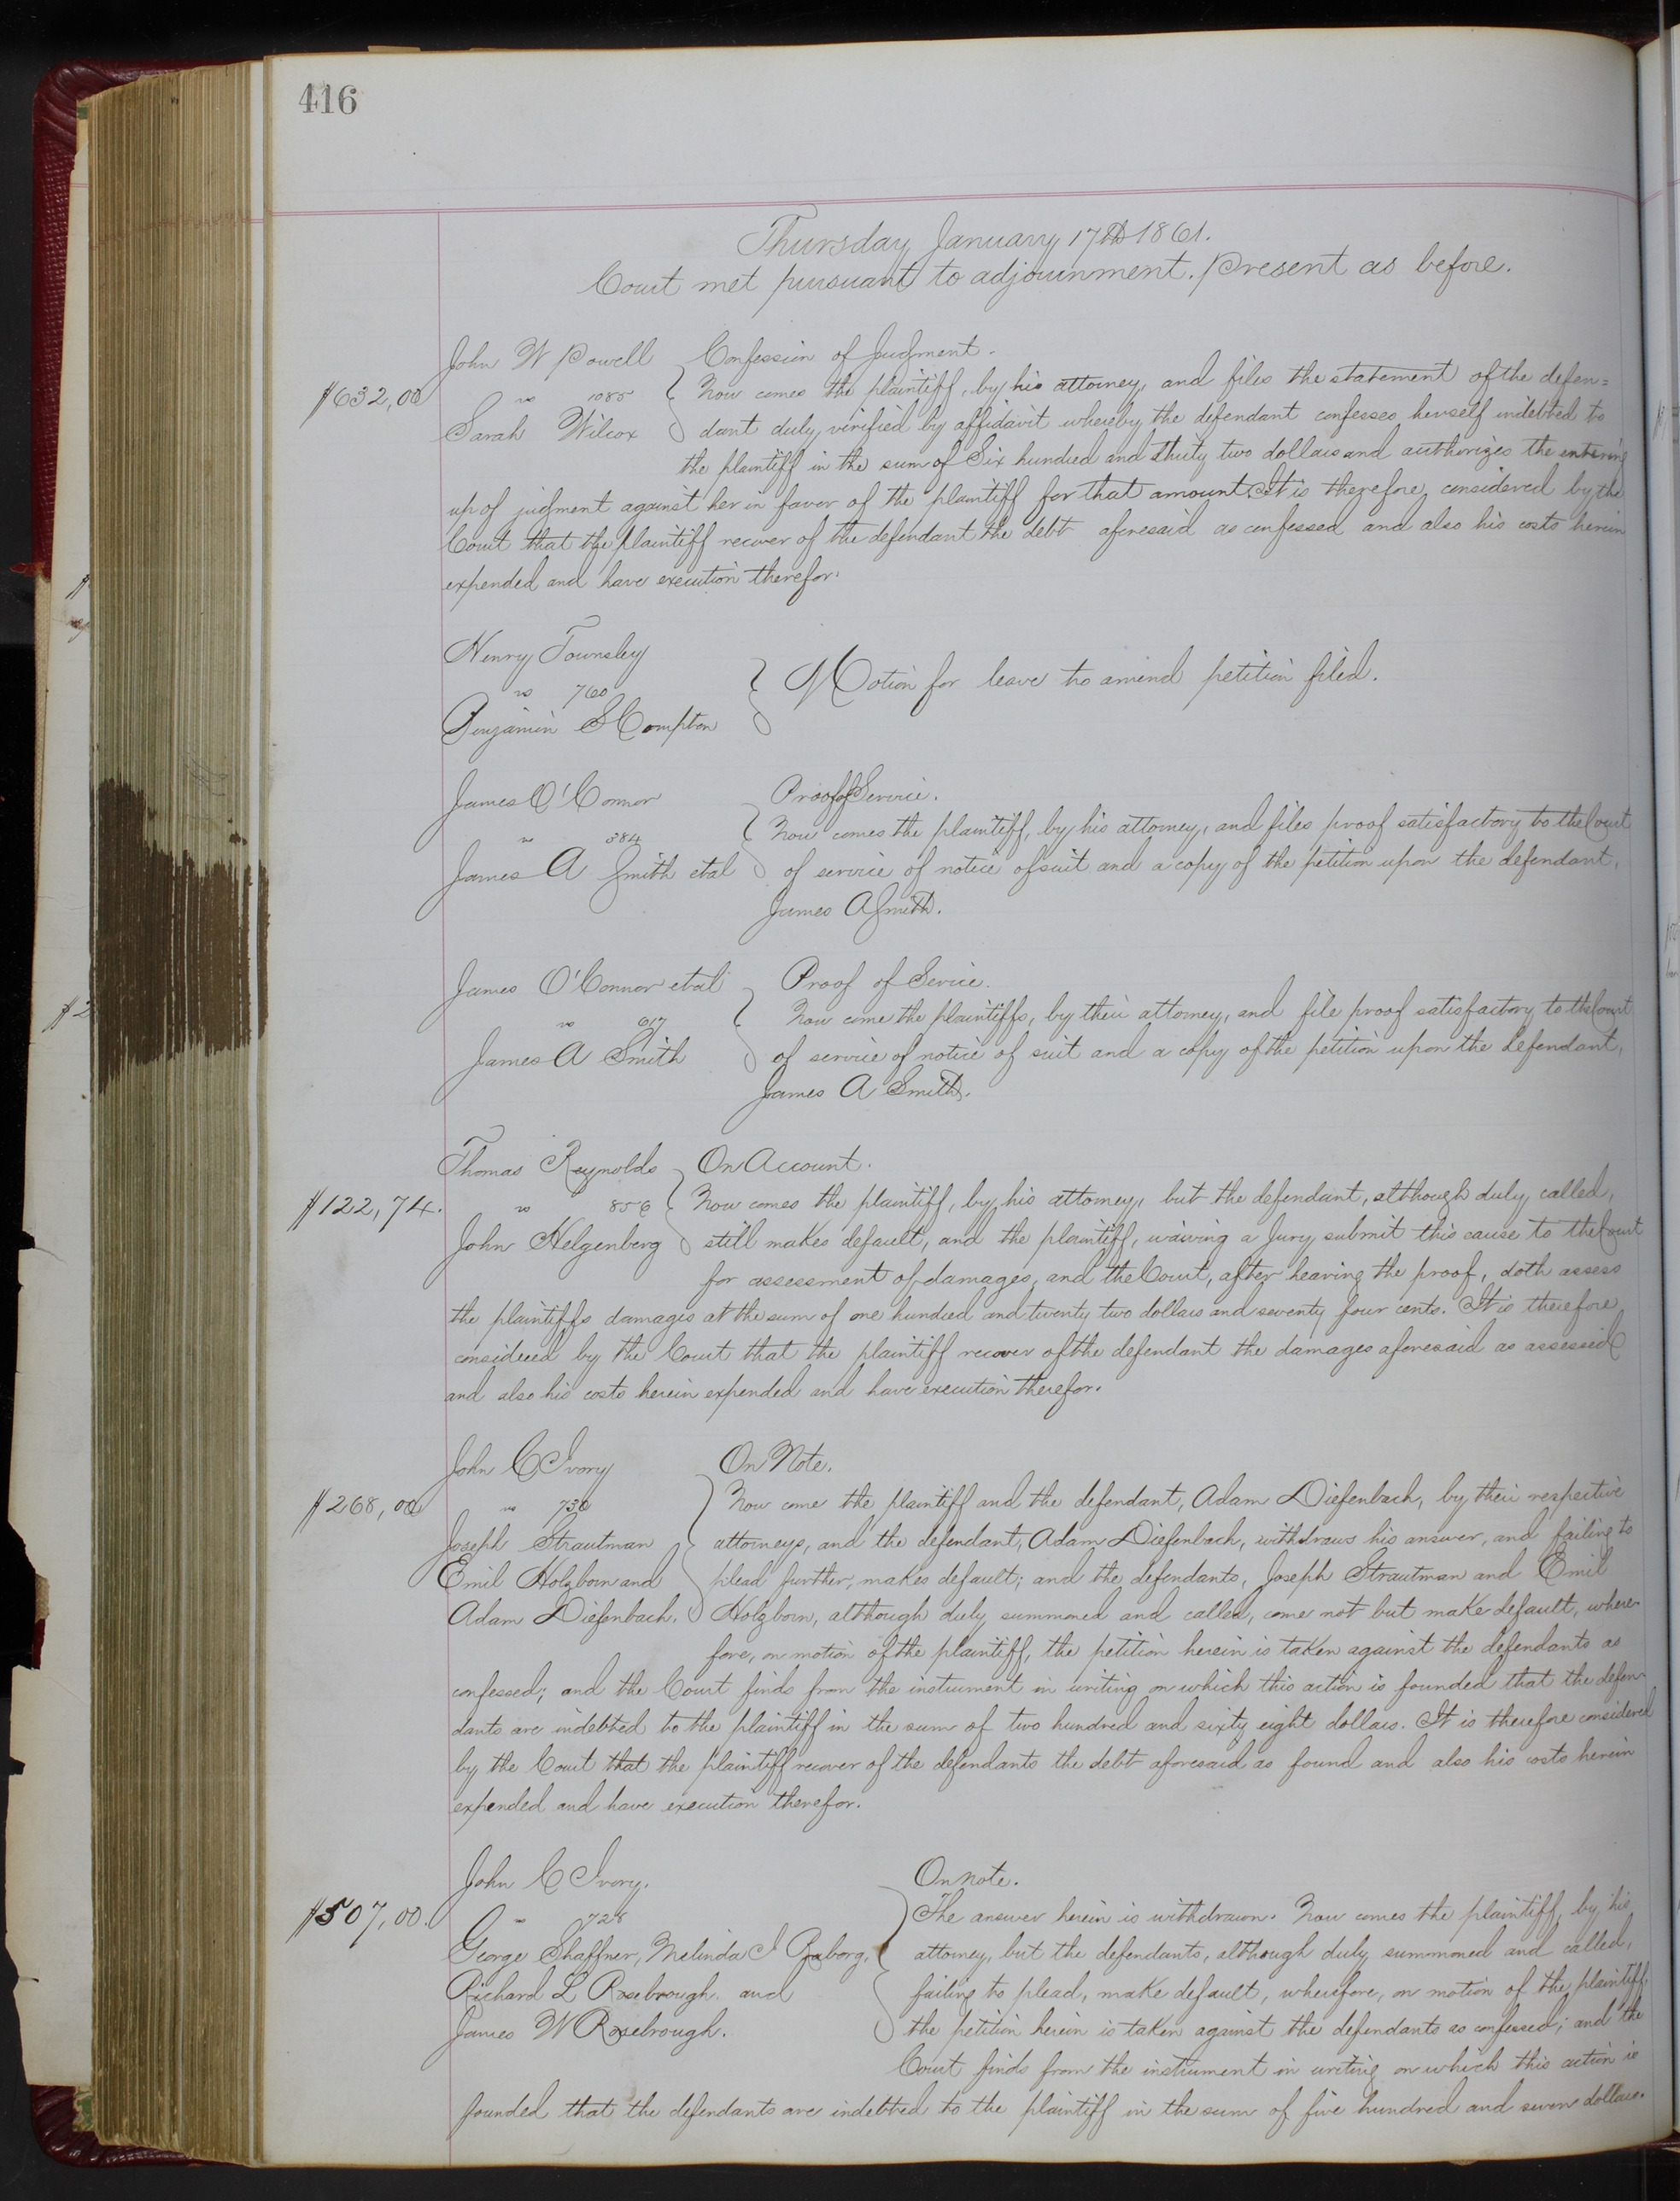 416
Thursday January 17th 1861.
Court met pursuant to adjournment. Present as before.
John W Powell Confession of Judgment.
$632,00 vs 1085 Now comes the plaintiff, by his attorney, and files the statement of the defen=
Sarah Wilcox dant duly virified by affidavit whereby the defendant confesses herself indebted to
the plaintiff in the sum of Six hundred and thirty two dollars and authorizes the entering
up of judgment against her in favor of the plaintiff for that amount. It is therefore considered by the
Court that the plaintiff recover of the defendant the debt aforesaid as confessed and also his costs herein
expended and have execution therefor.
Henry Townsley
vs 760 Motion for leave to amend petition filed.
Benjamin S Compton
James O'Connor Proof of Service.
vs 384 Now comes the plaintiff, by his attorney, and files proof satisfactory to the Court
James A Smith etal of service of notice of suit and a copy of the petition upon the defendant,
James A Smith.
James O'Connor etal Proof of Sevice.
vs 617 Now come the plaintiffs, by their attorney, and file proof satisfactory to the Court
James A Smith of service of notice of suit and a copy of the petition upon the defendant,
James A Smith.
Thomas Reynolds On Account.
$122,74. vs 856 Now comes the plaintiff, by his attorney, but the defendant, although duly called,
John Helgenberg still makes default, and the plaintiff, waiving a Jury submit this cause to the Court
for assessment of damages, and the Court, after hearing the proof, doth assess
the plaintiffs damages at the sum of one hundred and twenty two dollars and seventy four cents. It is therefore
considered by the Court that the plaintiff recover of the defendant the damages aforesaid as assessed
and also his costs herein expended and have execution therefor.
John C Ivory On Note.
$268,00 vs 730 Now come the plaintiff and the defendant, Adam Diefenbach, by their respective
Joseph Strautman attorneys, and the defendant, Adam Diefenbach, withdraws his answer, and failing to
Emil Holzborn and plead further, makes default; and the defendants, Joseph Strautman and Emil
Adam Diefenbach. Holzborn, although duly summoned and called, come not but make default, where-
fore, on motion of the plaintiff, the petition herein is taken against the defendants as
confessed; and the Court finds from the instrument in writing on which this action is founded that the defen-
dants are indebted to the plaintiff in the sum of two hundred and sixty eight dollars. It is therefore considered
by the Court that the plaintiff recover of the defendants the debt aforesaid as found and also his costs herein
expended and have execution therefor.
John C Ivory. On note.
$507,00. vs 728 The answer herein is withdrawn. Now comes the plaintiff, by his
George Shaffner, Melinda J Raborg, attorney, but the defendants, although duly summoned and called,
Richard L Rosebrough. and failing to plead, make default, wherefore, on motion of the plaintiff,
James W Rosebrough. the petition herein is taken against the defendants as confessed; and the
Court finds from the instrument in writing on which this action is
founded that the defendants are indebted to the plaintiff in the sum of five hundred and seven dollars.